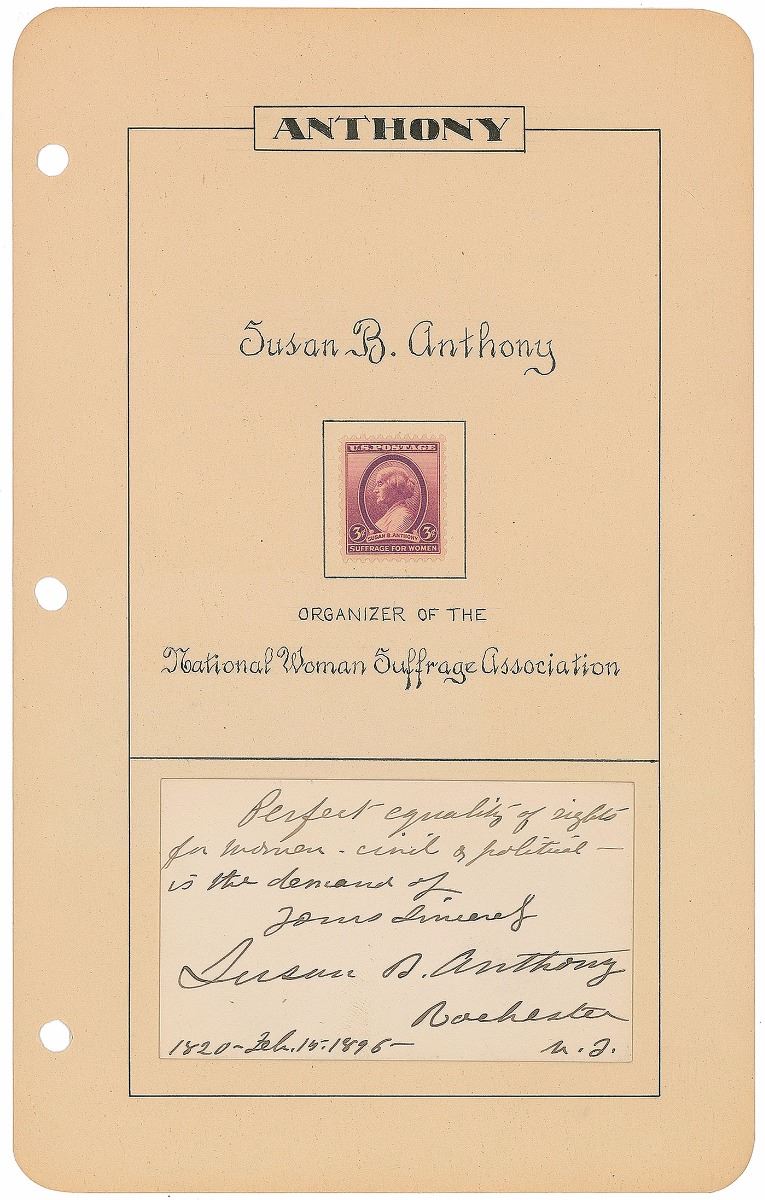 ANTHONY
Susan B. Anthony
U.S. POSTAGE
3¢ SUSAN B. ANTHONY 3¢
SUFFRAGE FOR WOMEN
ORGANIZER OF THE
National Woman Suffrage Association
Perfect equality of rights
for women - civil & political —
is the demand of
Yours sincerely
Susan B. Anthony
Rochester
1820 - Feb. 15. 1896 - N. Y.